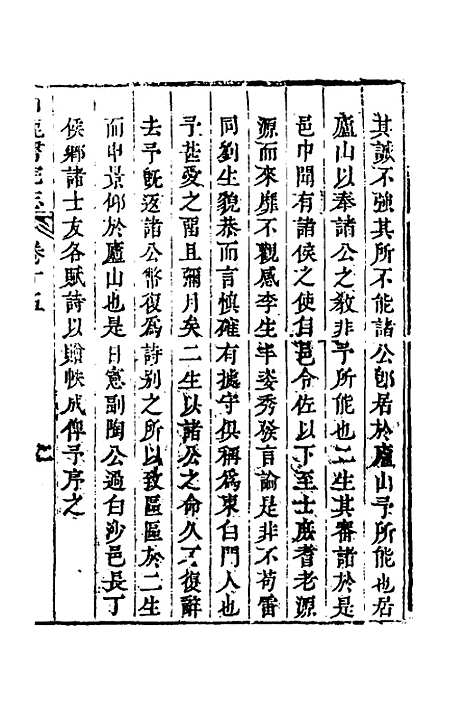 其誠不強其所不能諸公卽居於廬山予所能也居
廬山以奉諸公之敎非予所能也二生其審諸於是
邑中聞有諸侯之使自邑令佐以下至士庶耆老源
源而來靡不觀感李生丰姿秀發言論是非不苟雷
同劉生貌恭而言愼確有據守俱稱爲東白門人也
予甚愛之畱且彌月矣二生以諸公之命久不復辭
去予旣返諸公幣復爲詩別之所以致區區於二生
而申景仰於廬山也是日憲副陶公過白沙邑長丁
侯鄕諸士友各賦詩以贈帙成俾予序之
白鹿書院志 卷十五